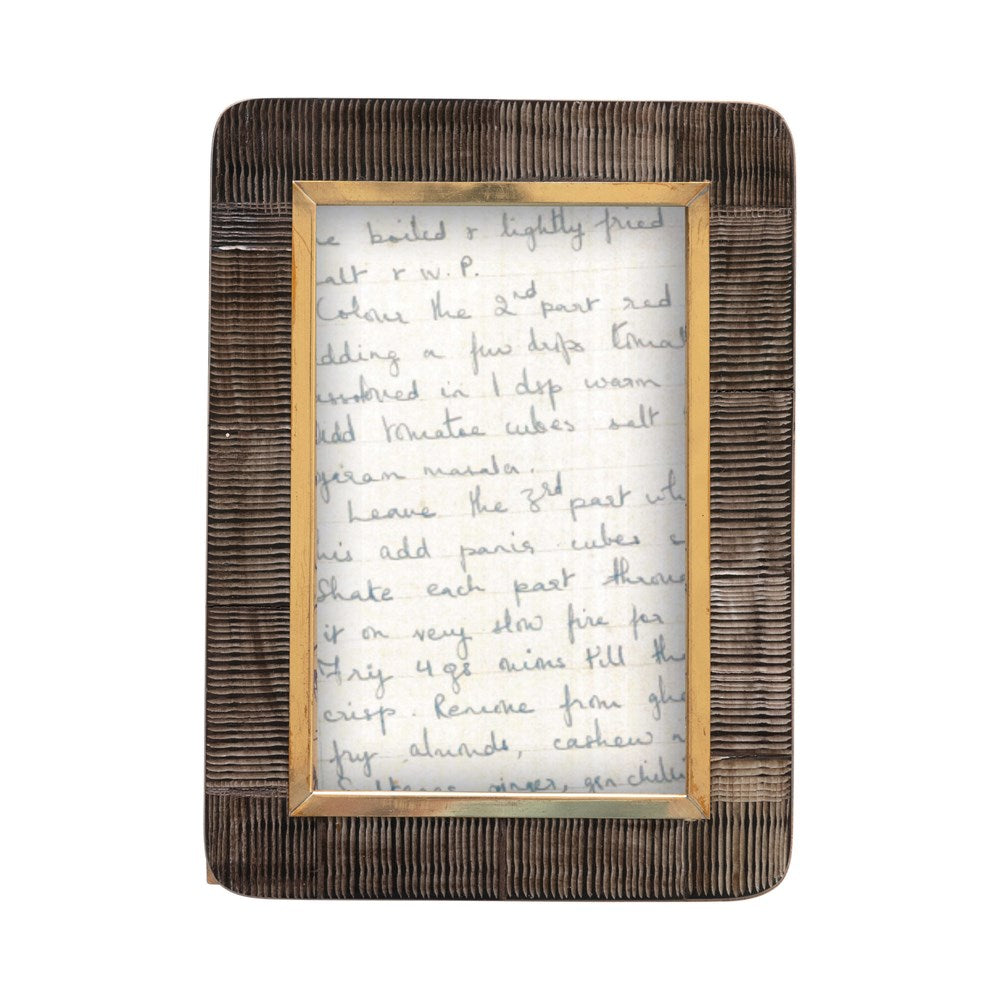 e boiled & lightly fried
alt & W.P.
Colour the 2nd part red
dding a few drops tomat
ssolved in 1 dsp warm
Add tomatoe cubes salt
garam masala.
Leave the 3rd part whi
his add panir cubes
Shake each part throu
it on very slow fire for
Fry 4 gs onions till the
crisp. Remove from ghe
fry almonds, cashew n
Sultanas ginger, grn chilli